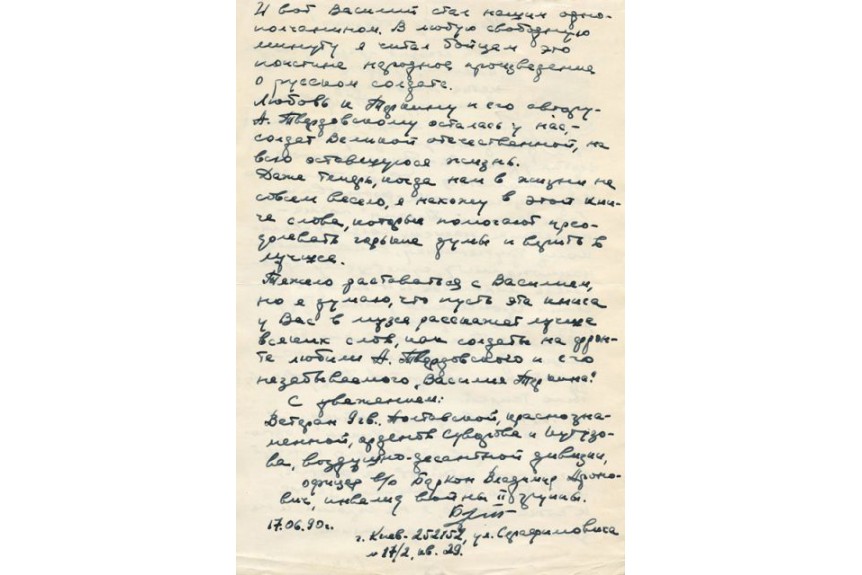 И вот Василий стал нашим одно-
полчанином. В любую свободную
минуту я читал бойцам это
поистине народное произведение
о русском солдате.
Любовь к Теркину и его автору-
А. Твардовскому осталась у нас,-
солдат Великой отечественной, на
всю оставшуюся жизнь.
Даже теперь, когда нам в жизни не
совсем весело, я нахожу в этой кни-
ге слова, которые помогают прео-
долевать горькие думы и верить в
лучшее.
Тяжело расставаться с Василием,
но я думаю, что пусть эта книга
у Вас в музее расскажет лучше
всяких слов, как солдаты на фрон-
те любили А. Твардовского и его
незабываемого „Василия Теркина".
С уважением:
Ветеран 9 гв. Полтавской, краснозна-
менной, ордена Суворова и Кутузо-
ва, воздушно-десантной дивизии,
офицер в/о Баркон Владимир
вич, инвалид войны II группы.
17.06.90г.
г. Киев-252152, ул. Серафимовича
№ 17/2, кв. 29.